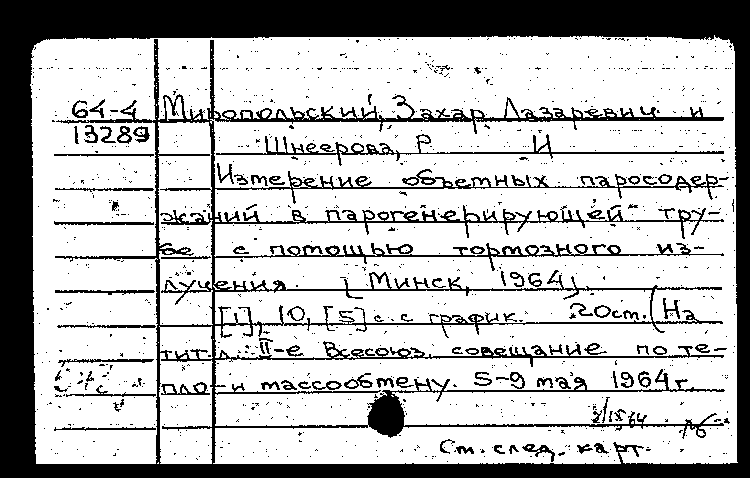 64-4 Миропольский, Захар Лазаревич и
13289 Шнеерова, Р И
Измерение объемных паросодер-
жаний в парогенерирующей тру-
бе с помощью тормозного из-
лучения. [Минск, 1964].
[1], 10, [5] с. с график. 20 см. (На
тит. л.: II-е Всесоюз. совещание по те-
пло- и массообмену. 5-9 мая 1964 г.
См. след. карт.